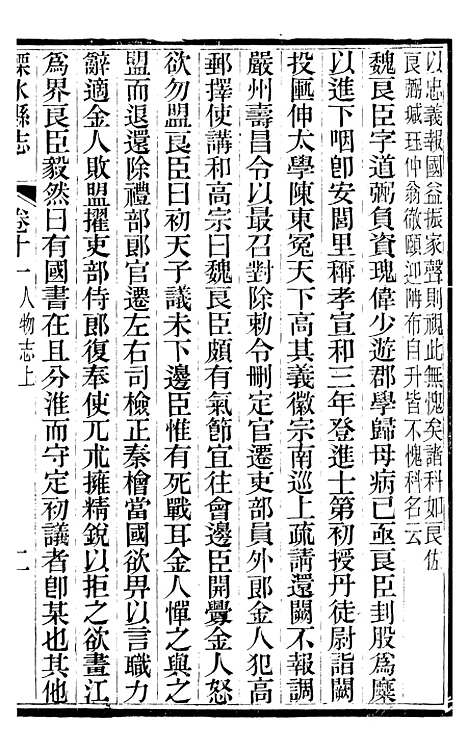 以忠義報國益振家聲則視此無愧矣諸科如良佐
良瀚珹珏仲翁徹頤迎陟布自升皆不愧科名云
魏良臣字道弼負資瑰偉少遊郡學歸母病已亟良臣刲股為糜
以進下咽卽安閭里稱孝宣和三年登進士第初授丹徒尉詣闕
投匭伸太學陳東冤天下高其義徽宗南巡上疏請還闕不報調
嚴州壽昌令以最召對除勑令刪定官遷吏部員外郎金人犯高
郵擇使講和高宗曰魏良臣頗有氣節宜往會邊臣開釁金人怒
欲勿盟良臣曰初天子議未下邊臣惟有死戰耳金人憚之與之
盟而退還除禮部郎官遷左右司檢正秦檜當國欲畀以言職力
辭適金人敗盟擢吏部侍郎復奉使兀朮擁精銳以拒之欲畫江
為界良臣毅然曰有國書在且分淮而守定初議者卽某也其他
溧水縣志 卷十一 人物志上 二